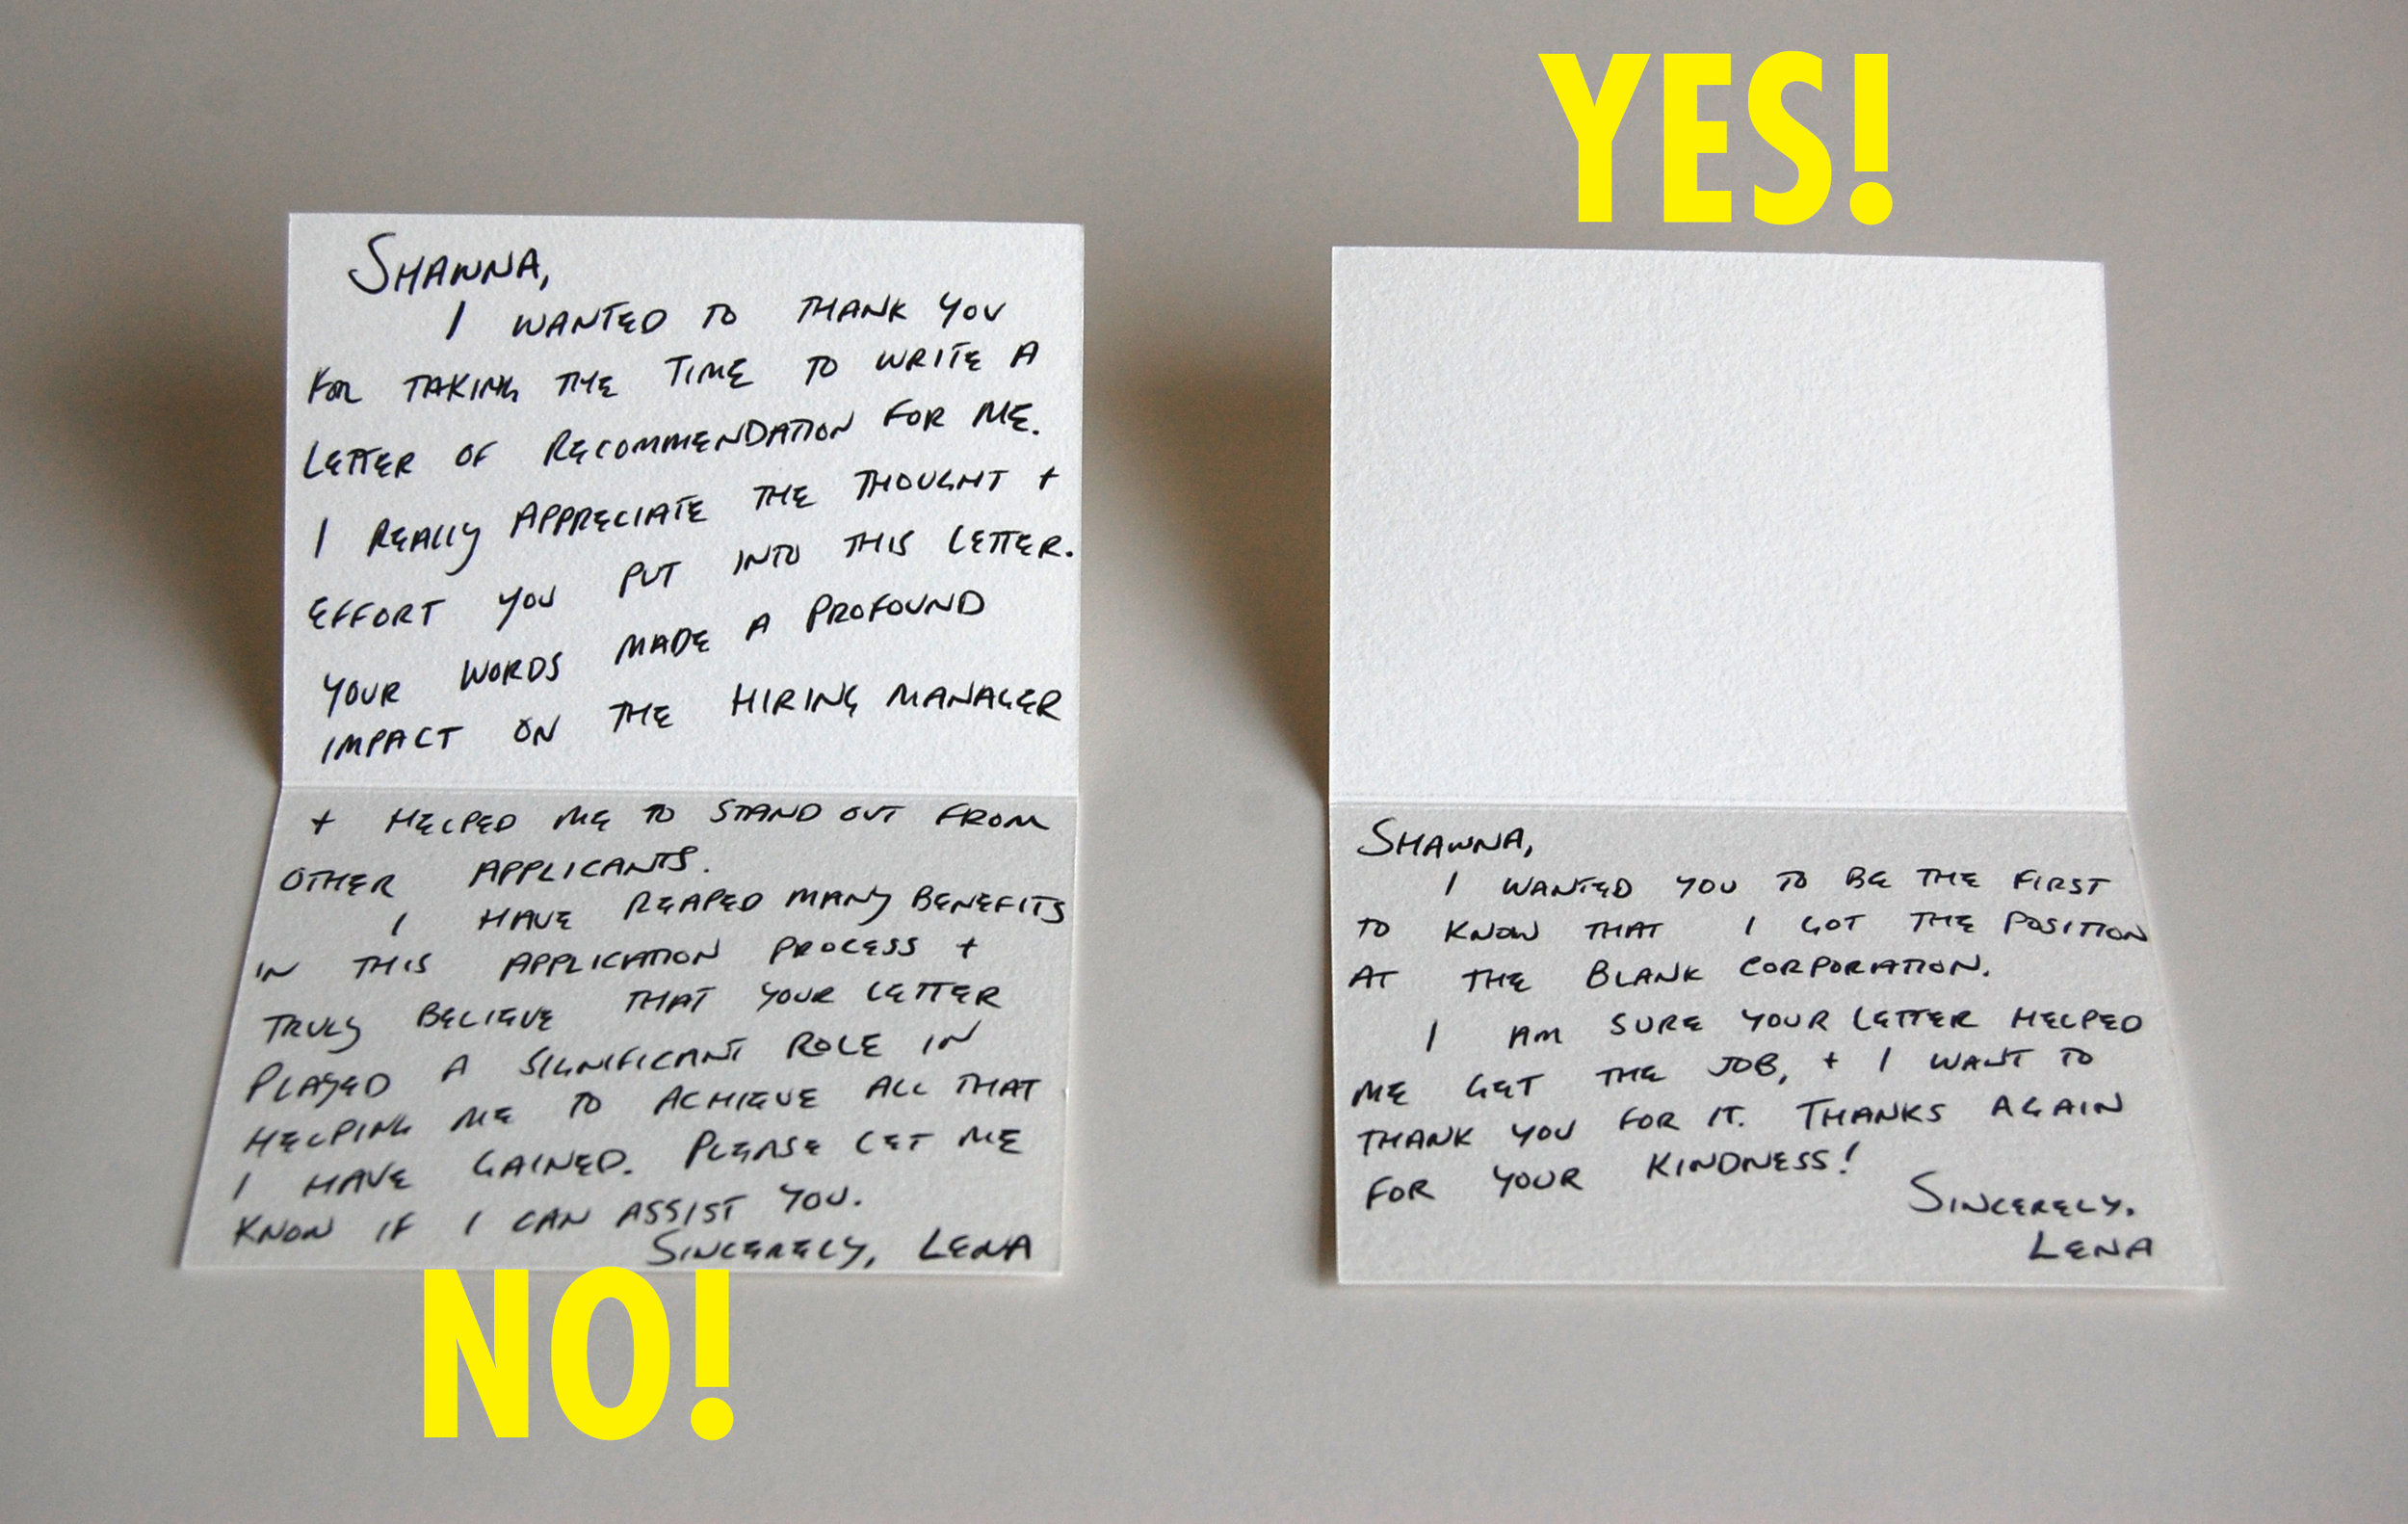 SHAWNA,
I WANTED TO THANK YOU
FOR TAKING THE TIME TO WRITE A
LETTER OF RECOMMENDATION FOR ME.
I REALLY APPRECIATE THE THOUGHT +
EFFORT YOU PUT INTO THIS LETTER.
YOUR WORDS MADE A PROFOUND
IMPACT ON THE HIRING MANAGER
+ HELPED ME TO STAND OUT FROM
OTHER APPLICANTS.
I HAVE REAPED MANY BENEFITS
IN THIS APPLICATION PROCESS +
TRULY BELIEVE THAT YOUR LETTER
PLAYED A SIGNIFICANT ROLE IN
HELPING ME TO ACHIEVE ALL THAT
I HAVE GAINED. PLEASE LET ME
KNOW IF I CAN ASSIST YOU.
SINCERELY, LENA
NO!
YES!
SHAWNA,
I WANTED YOU TO BE THE FIRST
TO KNOW THAT I GOT THE POSITION
AT THE BLANK CORPORATION.
I AM SURE YOUR LETTER HELPED
ME GET THE JOB, + I WANT TO
THANK YOU FOR IT. THANKS AGAIN
FOR YOUR KINDNESS!
SINCERELY.
LENA